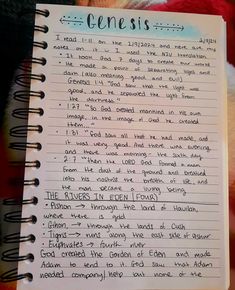 Genesis
2/9/24
I read 1-11 on the 1/9/2024 and here are my
notes on it - I used the NIV translation
• It took God 7 days to create our world
• He made a point of separating light and
dark (also meaning good and evil)
Genesis 1:4 "God saw that the light was
good, and he separated the light from
the darkness."
• 1:27 "So God created mankind in his own
image, in the image of God he created
them
• 1:31 "God saw all that he had made, and
it was very good. And there was evening,
and there was morning - the sixth day.
• 2:7 "Then the LORD God formed a man
from the dust of the ground and breathed
into his nostrils the breath of life, and
the man became a living being
THE RIVERS IN EDEN (FOUR)
• Pishon → through the land of Havilah,
where there is gold
• Gihon → through the lands of Cush
• Tigris → runs along east side of Ashur
• Euphrates → fourth river
God created the Garden of Eden and made
Adam to tend to it God saw that Adam
needed company/help but none of the